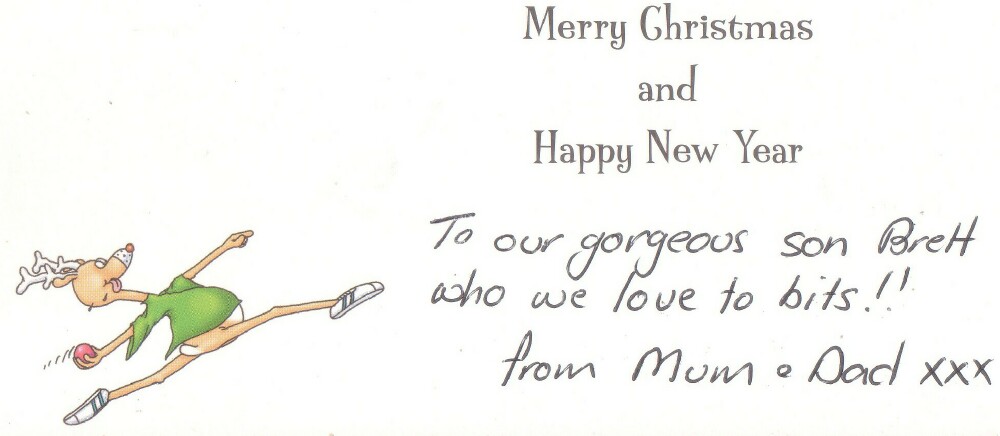 Merry Christmas
and
Happy New Year
To our gorgeous son Brett
who we love to bits!!
from Mum & Dad xxx